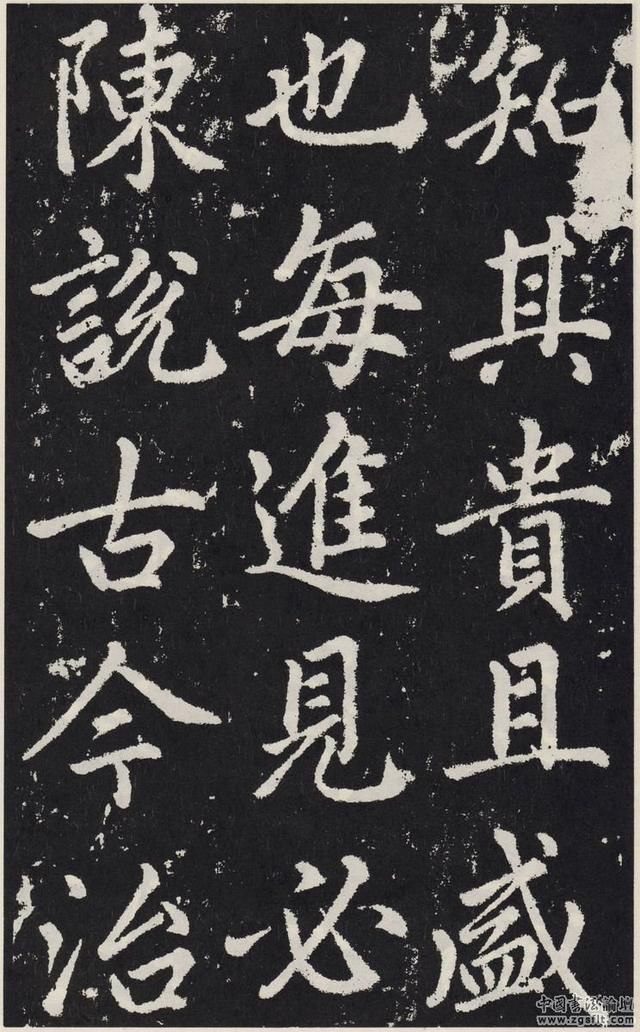 知其貴且盛
也每進見必
陳説古今治
中国书法论坛
www.zgsflt.com